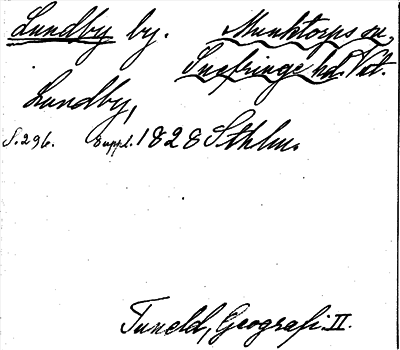 Lundby by. Munktorps sn,
Snefringe hd. Vtl.
Lundby,
S. 296. Suppl. 1828 Sthlm.
Tuneld, Geografi. II.